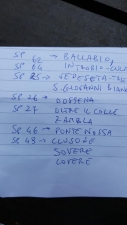 SP 62 → BALLABIO,
SP 64 INTROBIO-
SP 25 → VEDESETA-
S. GIOVANNI BIAN
SP 24 → DOSSENA
SP 27 OLTRE IL COLLE
ZAMBLA
SP 46 → PONTE NOSSA
SP 49 → CLUSONE
SOVERE
LOVERE